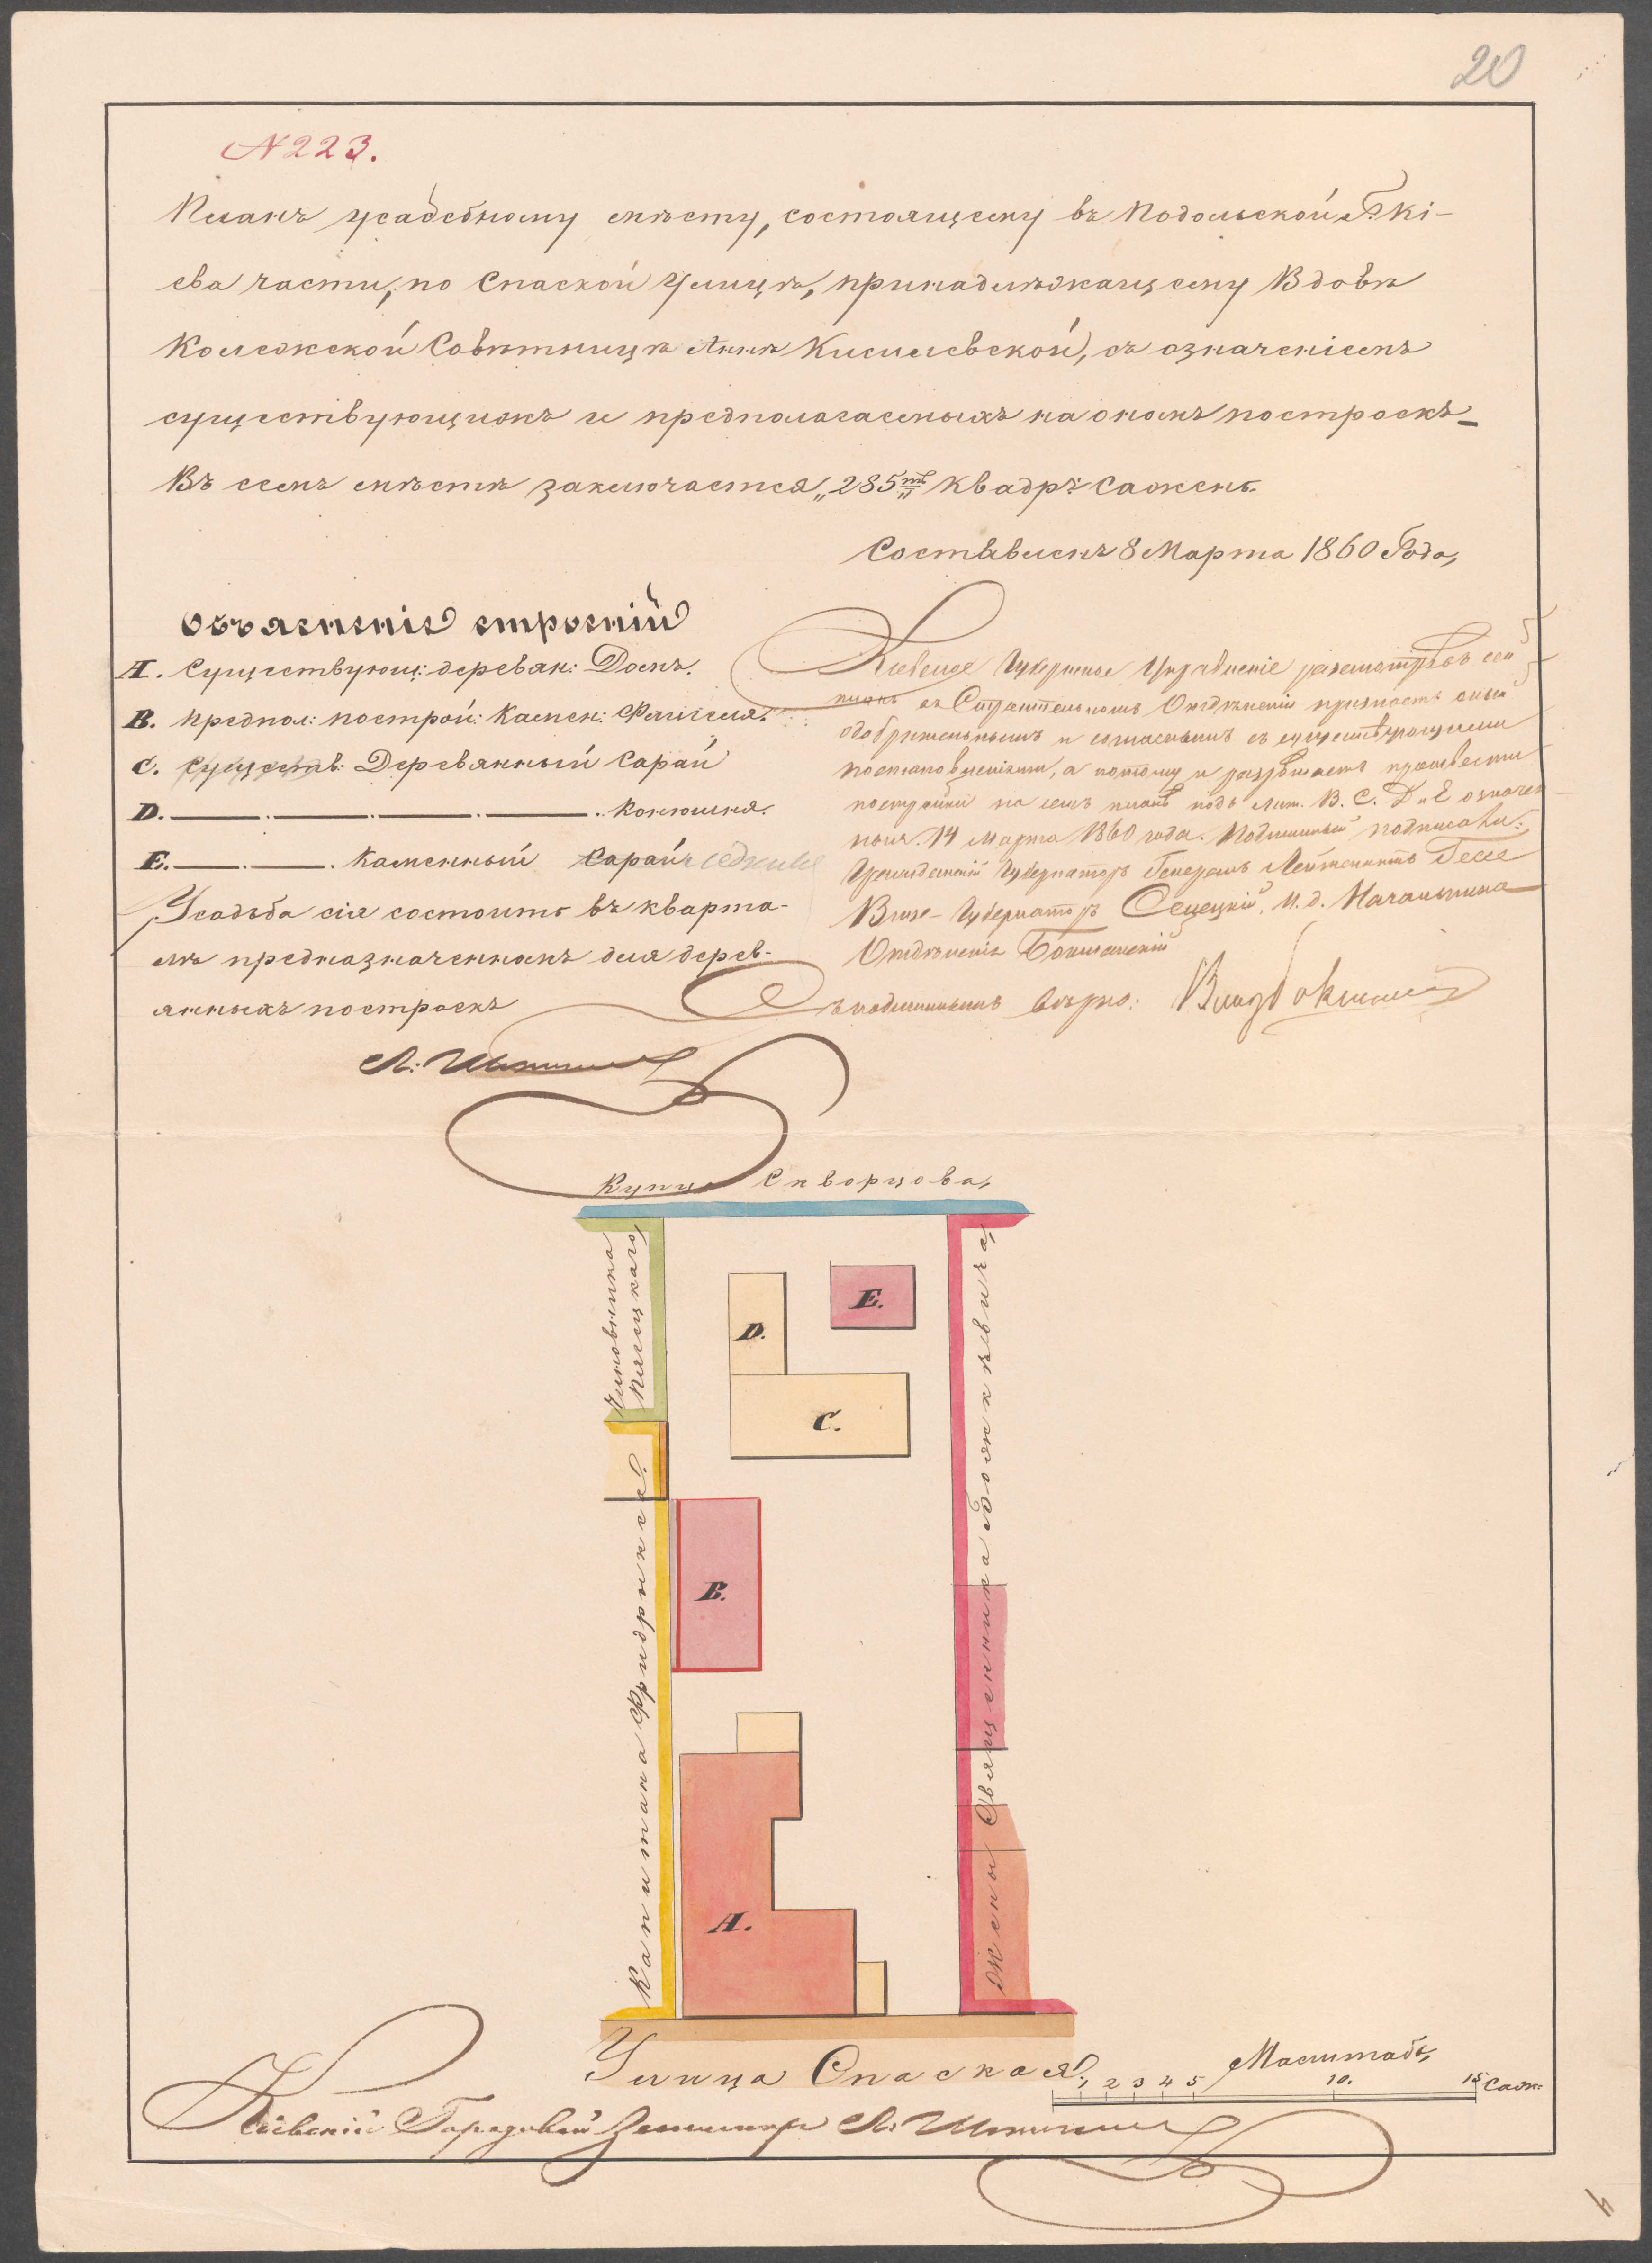 20
N 223.
Планъ усадебному мѣсту, состоящему въ Подольской Г. Кі-
ева части, по Спаской Улицѣ, принадлѣжащему Вдовѣ
Колежской Совѣтницѣ Аннѣ Кисилевской, съ означеніемъ
существующихъ и предполагаемыхъ на ономъ построекъ
Въ семъ мѣстѣ заключается „285ть„ квадр: Сажень.
Составленъ 8 Марта 1860 Года,
Объясненіе строеній
A. Существующ: деревян: Домъ.
B. предпол: построй: Камен: Флигеля.
C. Существ: Деревянный Сарай
D. Конюшня.
E. Каменный Сарай
Усадьба сія состоитъ въ кварта-
лѣ предназначенномъ для дерев-
янныхъ построекъ
Кіевское Губернское Управленіе разсмотрѣвъ сей
планъ въ Строительномъ Отдѣленіи признаетъ оный
одобрительнымъ и согласнымъ съ существующими
постановленіями, а потому и разрѣшаетъ произвести
постройки на семъ планѣ подъ лит. B. C. D и E означен-
ныя. 14 Марта 1860 года. Подлинный подписали:
Гражданскій Губернаторъ Генералъ Лейтенантъ Гессе
Вице-Губернаторъ Селецкій. И. д. Начальника
Отдѣленія
Съ подлиннымъ вѣрно:
Купца Скворцова,
Чиновника
D.
E.
C.
B.
A.
Капитана Фридрикса.
Жены Священника
Улица Спаская.
Масштабъ,
1 2 3 4 5 10. 15 Саж:
Кіевскій Городовой Землемѣр Л:
4